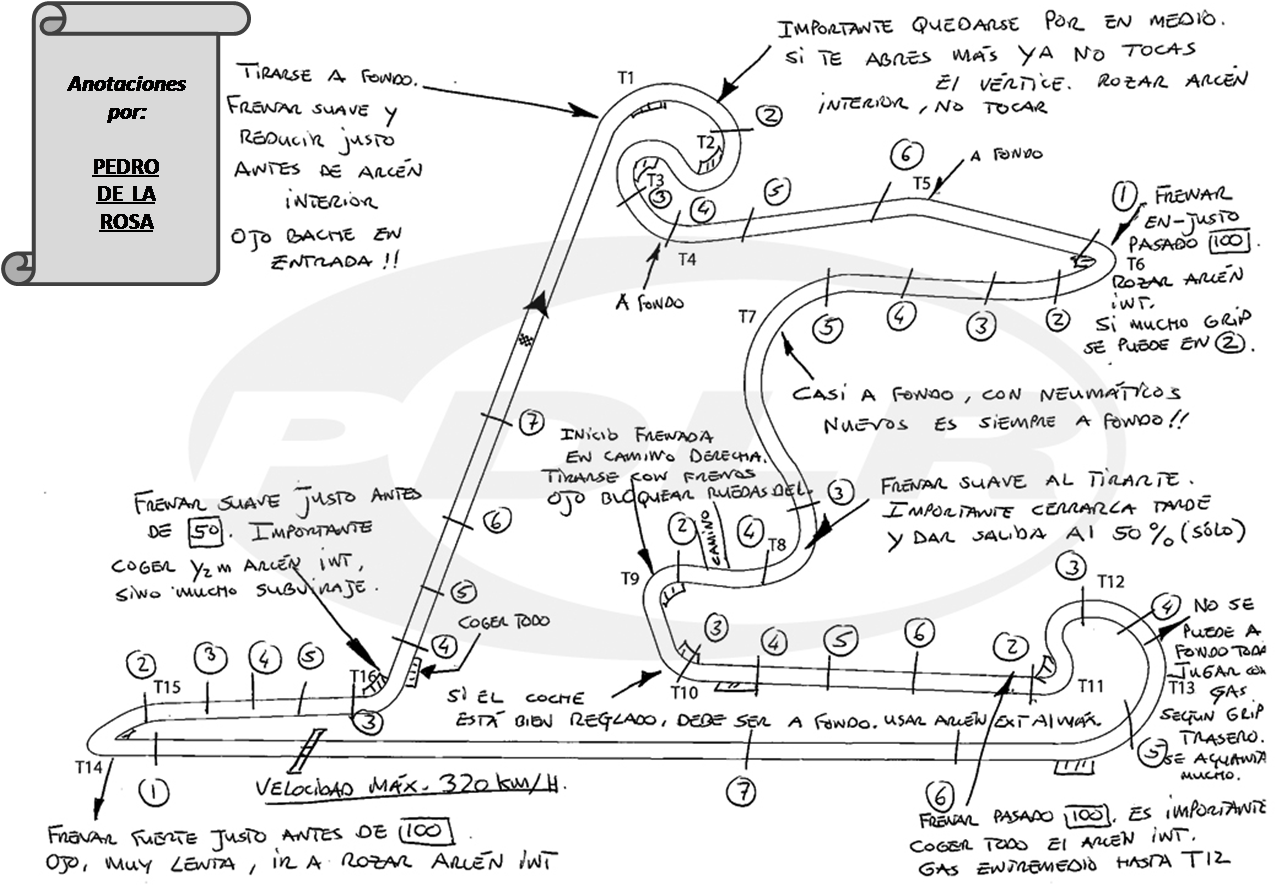 Anotaciones
por:
PEDRO
DE LA
ROSA
TIRARSE A FONDO.
FRENAR SUAVE Y
REDUCIR JUSTO
ANTES DE ARCÉN
INTERIOR
OJO BACHE EN
ENTRADA!!
IMPORTANTE QUEDARSE POR EN MEDIO.
SI TE ABRES MÁS YA NO TOCAS
El VÉRTICE. ROZAR ARCÉN
INTERIOR, NO TOCAR
T1
2
T2
T3
3
4
T4
A FONDO
5
6
T5
A FONDO
1
FRENAR
EN-JUSTO
PASADO 100.
T6
ROZAR ARCÉN
INT.
SI MUCHO GRIP
SE PUEDE EN 2.
2
3
4
5
T7
CASI A FONDO, CON NEUMÁTICOS
NUEVOS ES SIEMPRE A FONDO!!
3
FRENAR SUAVE AL TIRARTE.
IMPORTANTE CERRARLA TARDE
Y DAR SALIDA Al 50% (SÓLO)
T8
4
CAMINO
2
INICIO FRENADA
EN CAMINO DERECHA.
TIRARSE CON FRENOS
OJO BLOQUEAR RUEDAS DEL.
T9
3
T10
SI EL COCHE
ESTÁ BIEN REGLADO, DEBE SER A FONDO. USAR ARCÉN EXT Al MÁX.
4
5
6
2
T11
3
T12
4
T13
NO SE
PUEDE A
FONDO TODA
JUGAR CON
GAS
SEGÚN GRIP
TRASERO.
SE AGUANTA
MUCHO.
5
FRENAR PASADO 100. ES IMPORTANTE
COGER TODO El ARCÉN INT.
GAS ENTREMEDIO HASTA T12
6
7
VELOCIDAD MÁX. 320 KM/H.
1
T14
FRENAR FUERTE JUSTO ANTES DE 100.
OJO, MUY LENTA, IR A ROZAR ARCÉN INT
2
T15
3
4
5
T16
3
FRENAR SUAVE JUSTO ANTES
DE 50. IMPORTANTE
COGER 1/2 m ARCÉN INT,
SINO MUCHO SUBVIRAJE.
4
COGER TODO
5
6
7
PDLR